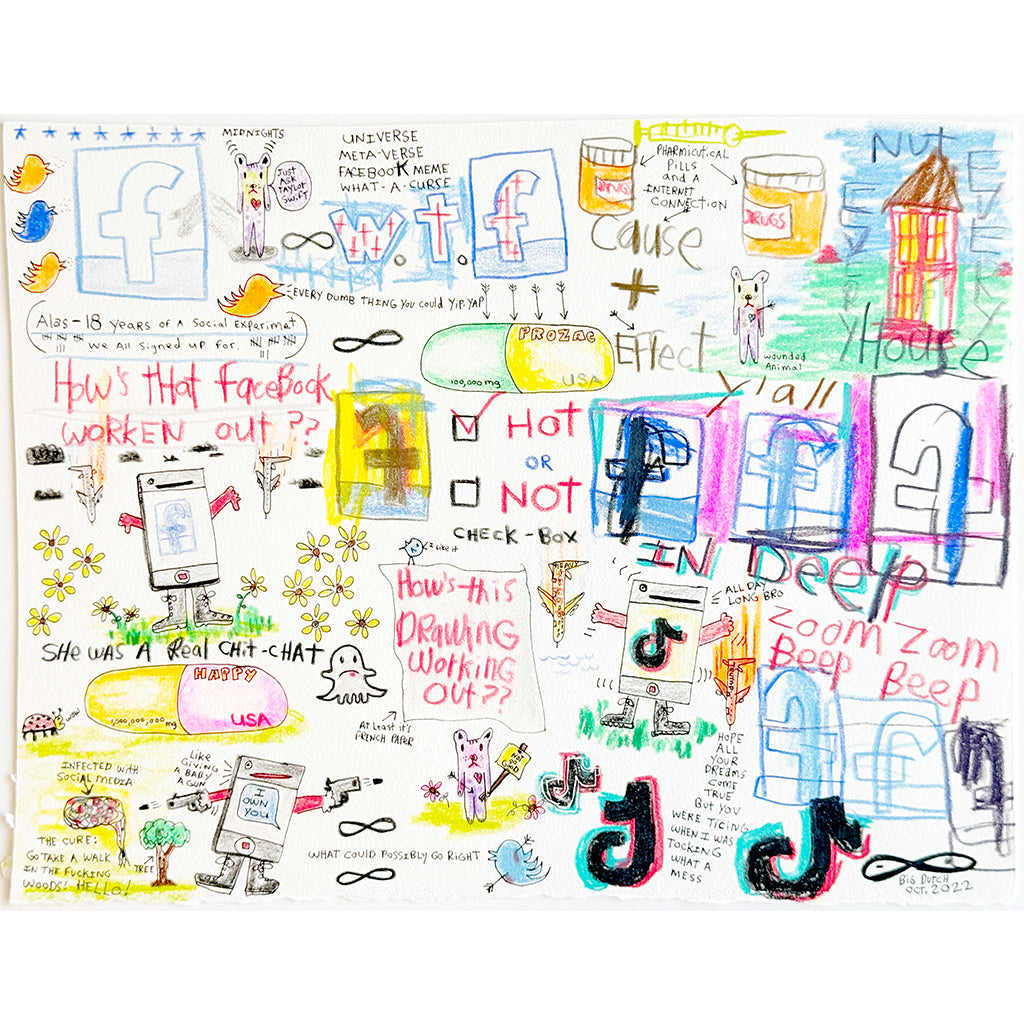 MIDNIGHTS
JUST
ASK
TAYLOR
SWIFT
UNIVERSE
META-VERSE
FACEBOOK MEME
WHAT-A-CURSE
W.T.F
DRUGS
PHARMICUTICAL
PILLS
AND A
INTERNET
CONNECTION
DRUGS
CAUSE
+
EFFECT
NUT
House
wounded
Animal
EVERY DUMB THING YOU COULD YIP-YAP
Alas-18 years of A Social Experimet
We All Signed up for.
PROZAC
100,000 mg
USA
How's that FaceBook
WORKEN OUT??
HOT
OR
NOT
CHECK-BOX
y'all
IN Deep
I like it
How's-this
DRAWing
Working
OUT??
At Least it's
FRENCH PAPER
ALL DAY
LONG BRO
ZOOM ZOOM
Beep Beep
SHE WAS A Real CHIT-CHAT
HAPPY
1,000,000,000 mg
USA
WOW
INFECTED WITH
SOCIAL MEDIA
THE CURE:
GO TAKE A WALK
IN THE FUCKING
WOODS! HELLO!
TREE
Like
GIVING
A BABY
A GUN
I
OWN
YOU
NOT SO
GOOD
WHAT COULD POSSIBLY GO RIGHT
HOPE
ALL
YOUR
DREAMS
COME
TRUE
BUT YOU
WERE TICING
WHEN I WAS
TOCKING
WHAT A
MESS
BIG DUTCH
OCT. 2022